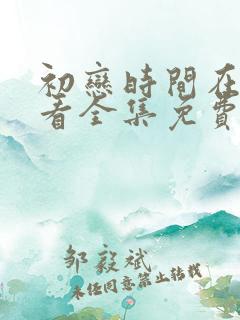 初戀時間在
着全集免費
邹毅斌
未经同意禁止转载